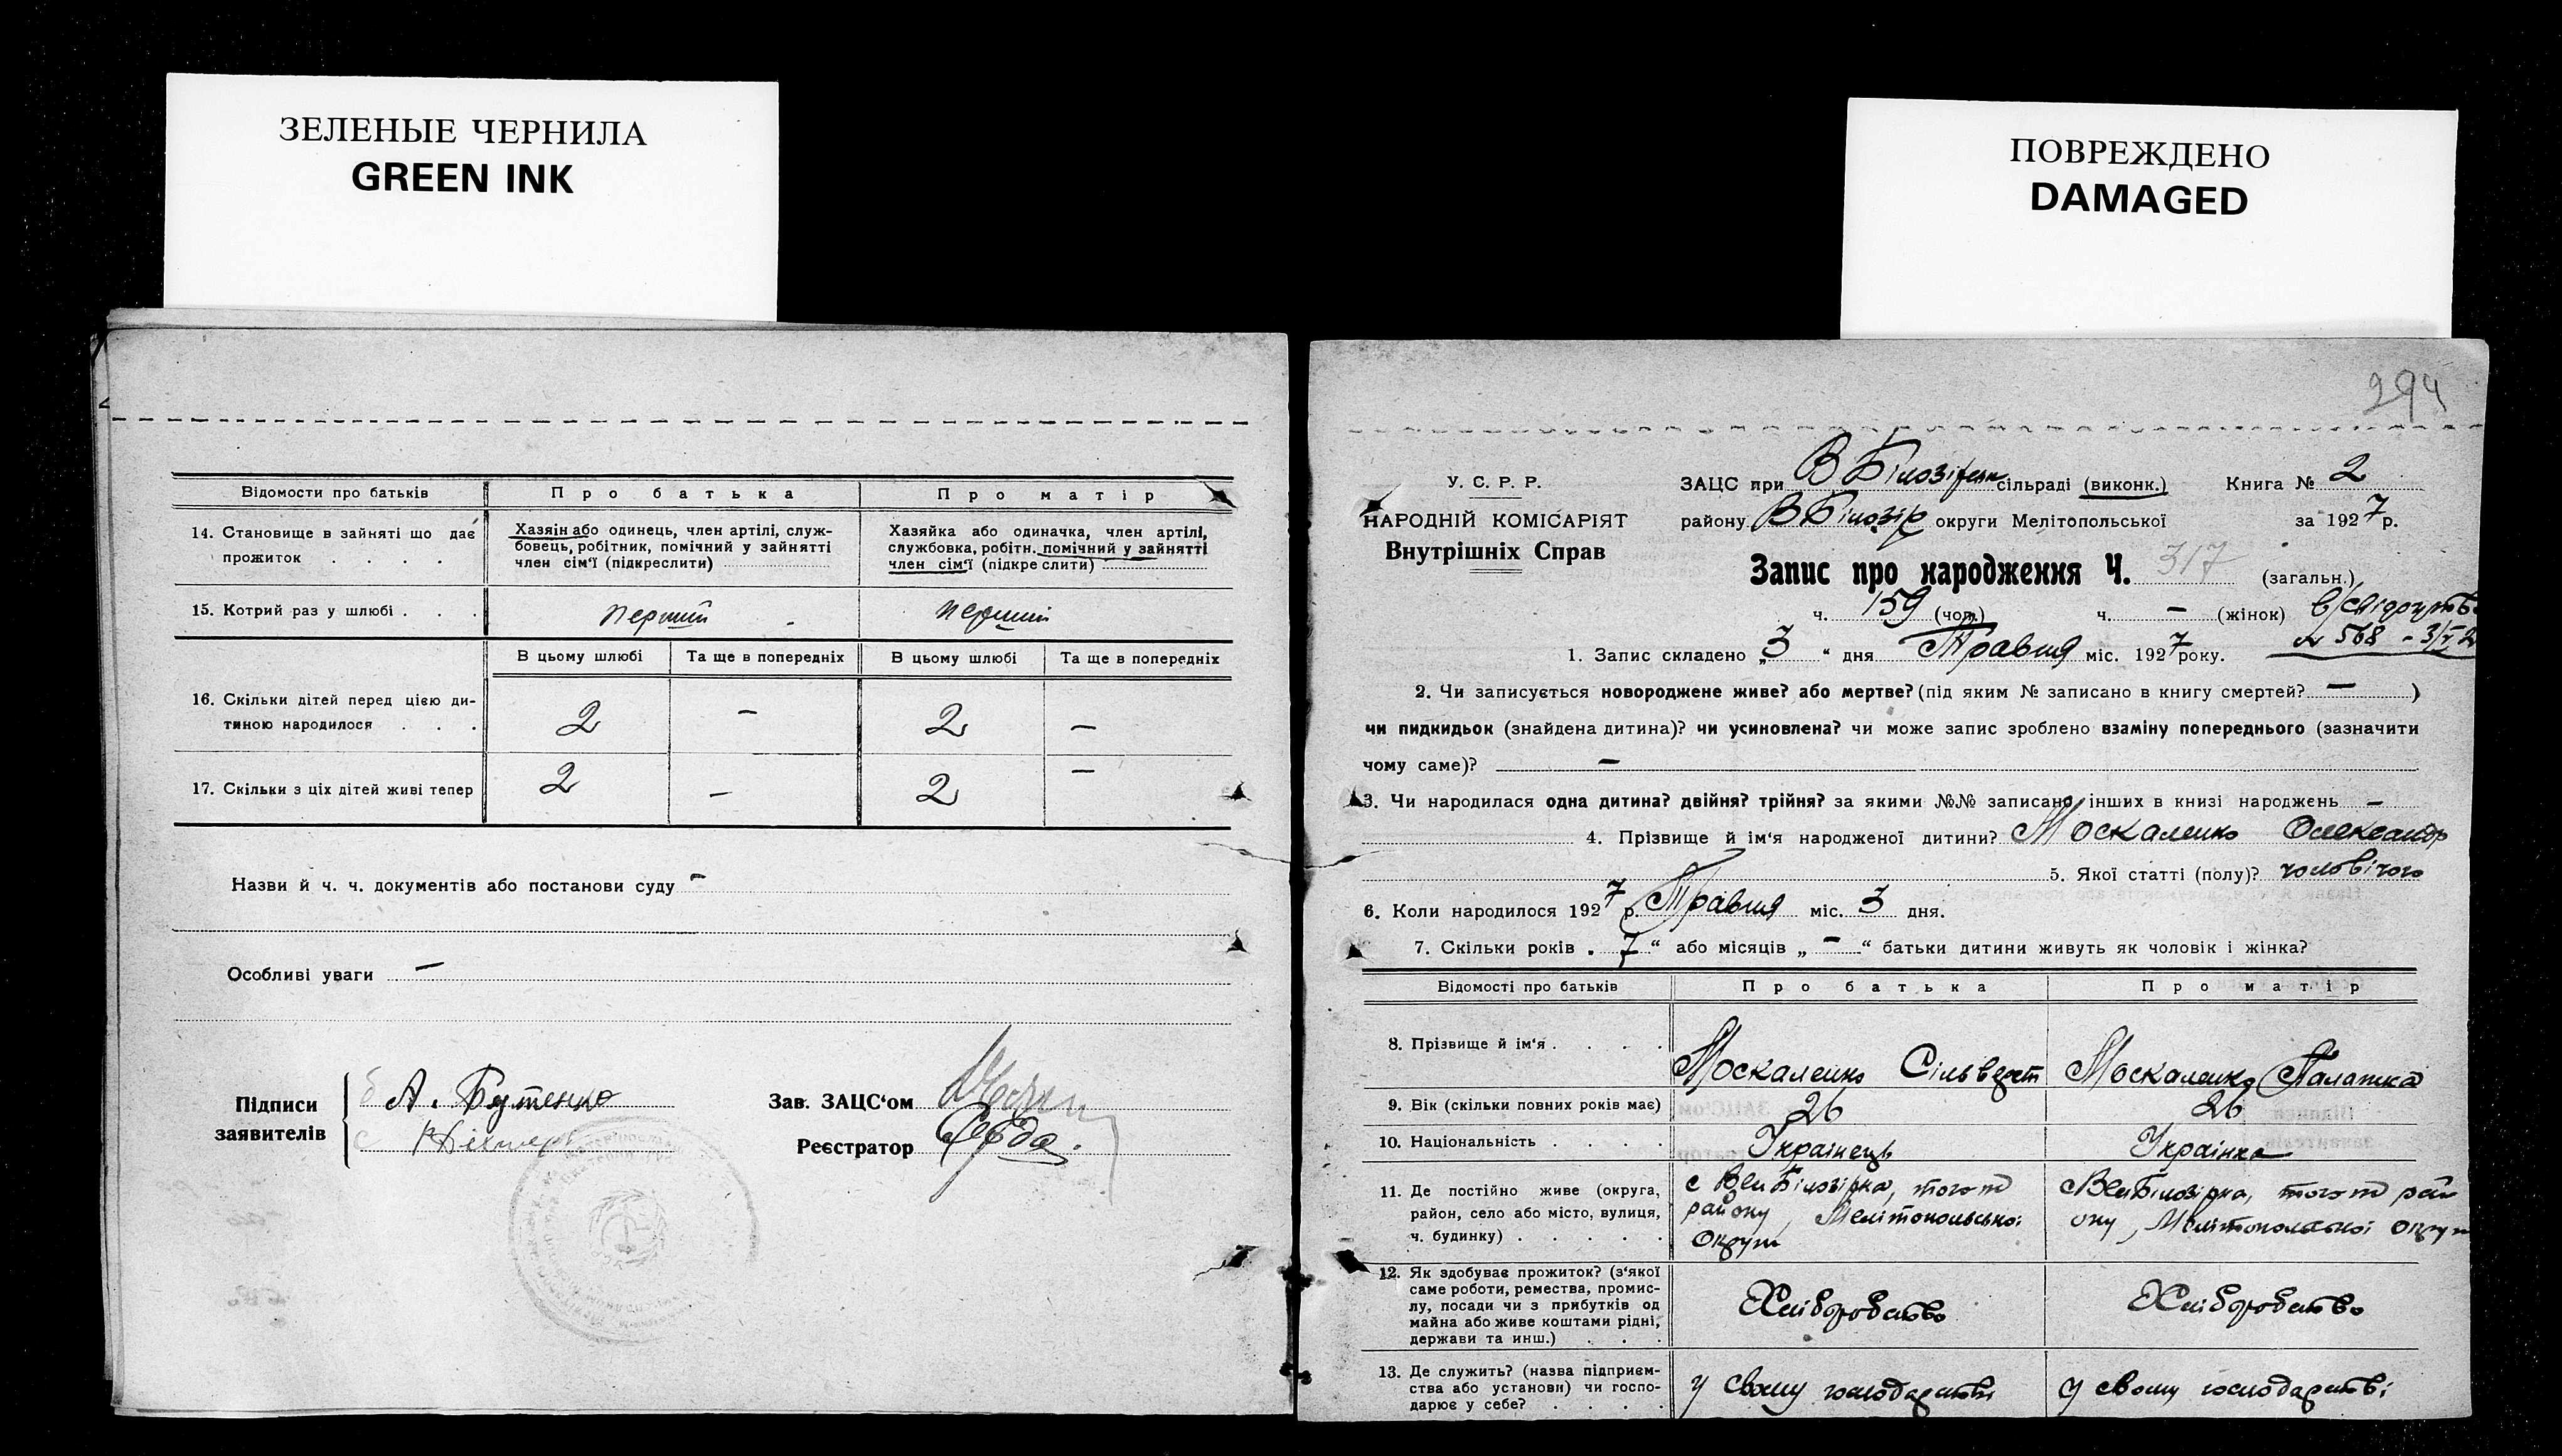 ЗЕЛЕНЫЕ ЧЕРНИЛА
GREEN INK
ПОВРЕЖДЕНО
DAMAGED
Відомости про батьків
Про батька
Про матір
14. Становище в зайняті що дає прожиток . . . .
Хазяін або одинець, член артілі, служ-
бовець, робітник, помічний у зайнятті
член сім'ї (підкреслити)
Хазяйка або одиначка, член артілі,
службовка, робітн. помічний у зайнятті
член сім'ї (підкре слити)
15. Котрий раз у шлюбі . . .
перший
перший
В цьому шлюбі
Та ще в попередніх
В цьому шлюбі
Та ще в попередніх
16. Скільки дітей перед цією ди-
тиною народилося . . .
2 — 2 —
17. Скільки з ціх дітей живі тепер
2 — 2 —
Назви й ч. ч. документів або постанови суду —
Особливі уваги —
Підписи
заявителів
А. Бутенко
Зав. ЗАЦС'ом
Реєстратор
294
У. С. Р. Р.
НАРОДНІЙ КОМІСАРІЯТ
Внутрішніх Справ
ЗАЦС при В Білозірськ сільраді (виконк.) Книга № 2
району В Білозір округи Мелітопольської за 1927 р.
Запис про народження Ч. 317 (загальн.)
ч. 159 (чол.) ч. — (жінок)
№ 568
1. Запис складено „3“ дня Травня міс. 1927 року.
2. Чи записується новороджене живе? або мертве? (під яким № записано в книгу смертей? — )
чи пидкидьок (знайдена дитина)? чи усиновлена? чи може запис зроблено взаміну попереднього (зазначити
чому саме)? —
3. Чи народилася одна дитина? двійня? трійня? за якими №№ записано інших в книзі народжень —
4. Прізвище й ім'я народженої дитини? Москаленко Олександр
5. Якої статті (полу)? чоловічого
6. Коли народилося 1927 р. Травня міс. 3 дня.
7. Скільки років „7“ або місяців „—“ батьки дитини живуть як чоловік і жінка?
Відомості про батьків
Про батька
Про матір
8. Прізвище й ім'я . . . .
Москаленко Сільвест
Москаленко Палажка
9. Вік (скільки повних років має)
26
26
10. Національність . . . .
Українець
Українка
11. Де постійно живе (округа,
район, село або місто, вулиця,
ч. будинку) . . . . .
с Вел Білозірка, того ж
району, Мелітопольської
Округи
с Вел Білозірка, того ж рай
ону, Мелітопольської округи
12. Як здобуває прожиток? (з'якої
саме роботи, ремества, промис-
лу, посади чи з прибутків од
майна або живе коштами рідні,
держави та инш.) . . .
Хліборобство
Хліборобство
13. Де служить? (назва підприєм-
ства або установи) чи госпо-
дарює у себе? . . . .
у свому господарстві
у свому господарстві